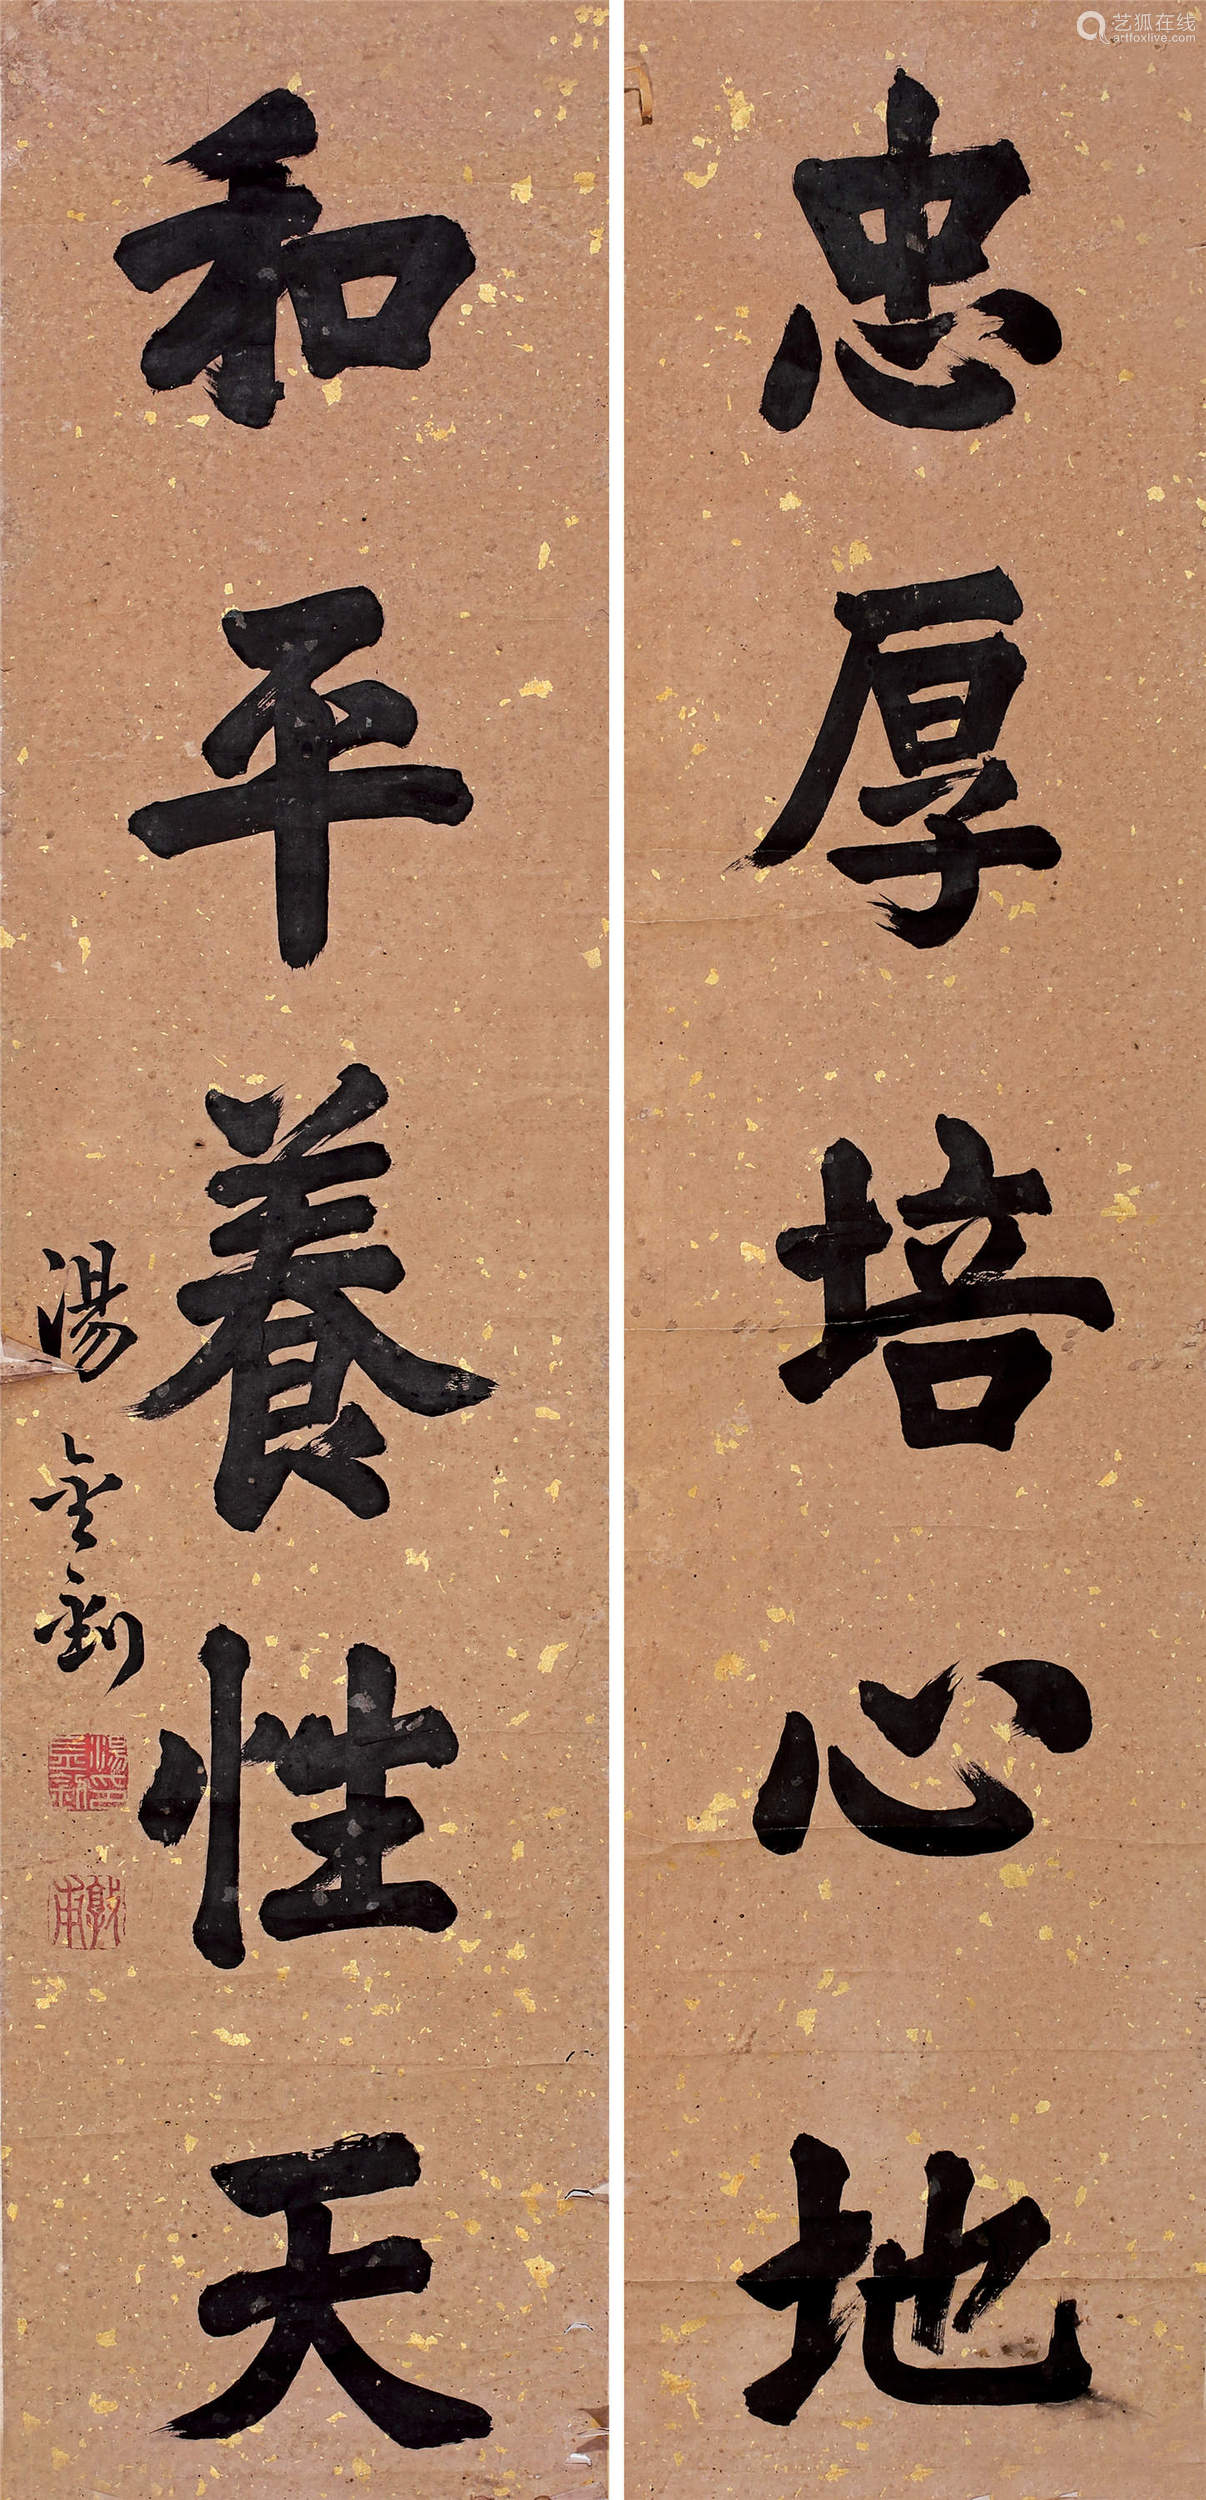 忠厚培心地
和平養性天
湯金釗
湯金釗印
敦甫
艺狐在线
artfoxlive.com